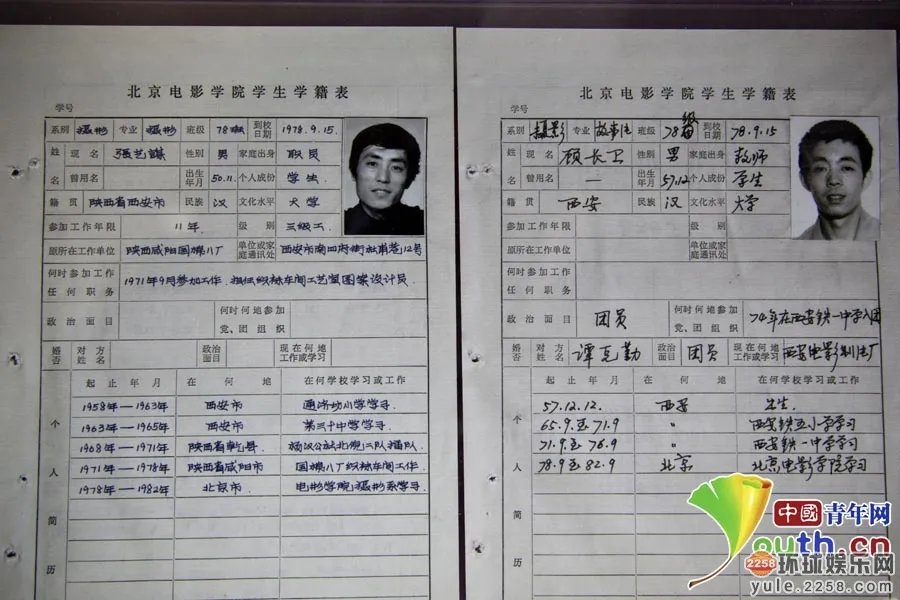 北京电影学院学生学籍表
学号
系别 摄影 专业 摄影 班级 78班 到校日期 1978.9.15.
姓名 现名 张艺谋 性别 男 家庭出身 职员
曾用名 出生年月 50.11. 个人成份 学生
籍贯 陕西省西安市 民族 汉 文化水平 大学
参加工作年限 11年 级别 三级工
原所在工作单位 陕西咸阳国棉八厂 单位或家庭通讯处
何时参加工作任何职务 1971年9月参加工作
政治面目 何时何地参加党、团组织
婚否 对方姓名 政治面目 现在何地工作或学习
个人简历
起止年月 在何地 在何学校学习或工作
1958年—1963年 西安市 小学学习
1963年—1965年 西安市 第三十中学学习
1968年—1971年 陕西省乾县
1971年—1978年 陕西省咸阳市 国棉八厂织袜车间工作
1978年—1982年 北京市 电影学院摄影系学习
北京电影学院学生学籍表
学号
系别 摄影 专业 班级 78级 到校日期 78.9.15
姓名 现名 顾长卫 性别 男 家庭出身 教师
曾用名 — 出生年月 57.12 个人成份 学生
籍贯 西安 民族 汉 文化水平 大学
参加工作年限 级别
原所在工作单位 单位或家庭通讯处
何时参加工作任何职务
政治面目 团员 何时何地参加党、团组织 74年在西安铁一中学入团
婚否 对方姓名 谭克勤 政治面目 团员 现在何地工作或学习 西安电影制片厂
个人简历
起止年月 在何地 在何学校学习或工作
57.12.12. 西安 出生.
65.9至71.9 〃 西安铁五小学学习
71.9至76.9 〃 西安铁一中学学习
78.9至82.9 北京 北京电影学院学习
中國青年网
youth.cn
2258 环球娱乐网
yule.2258.com